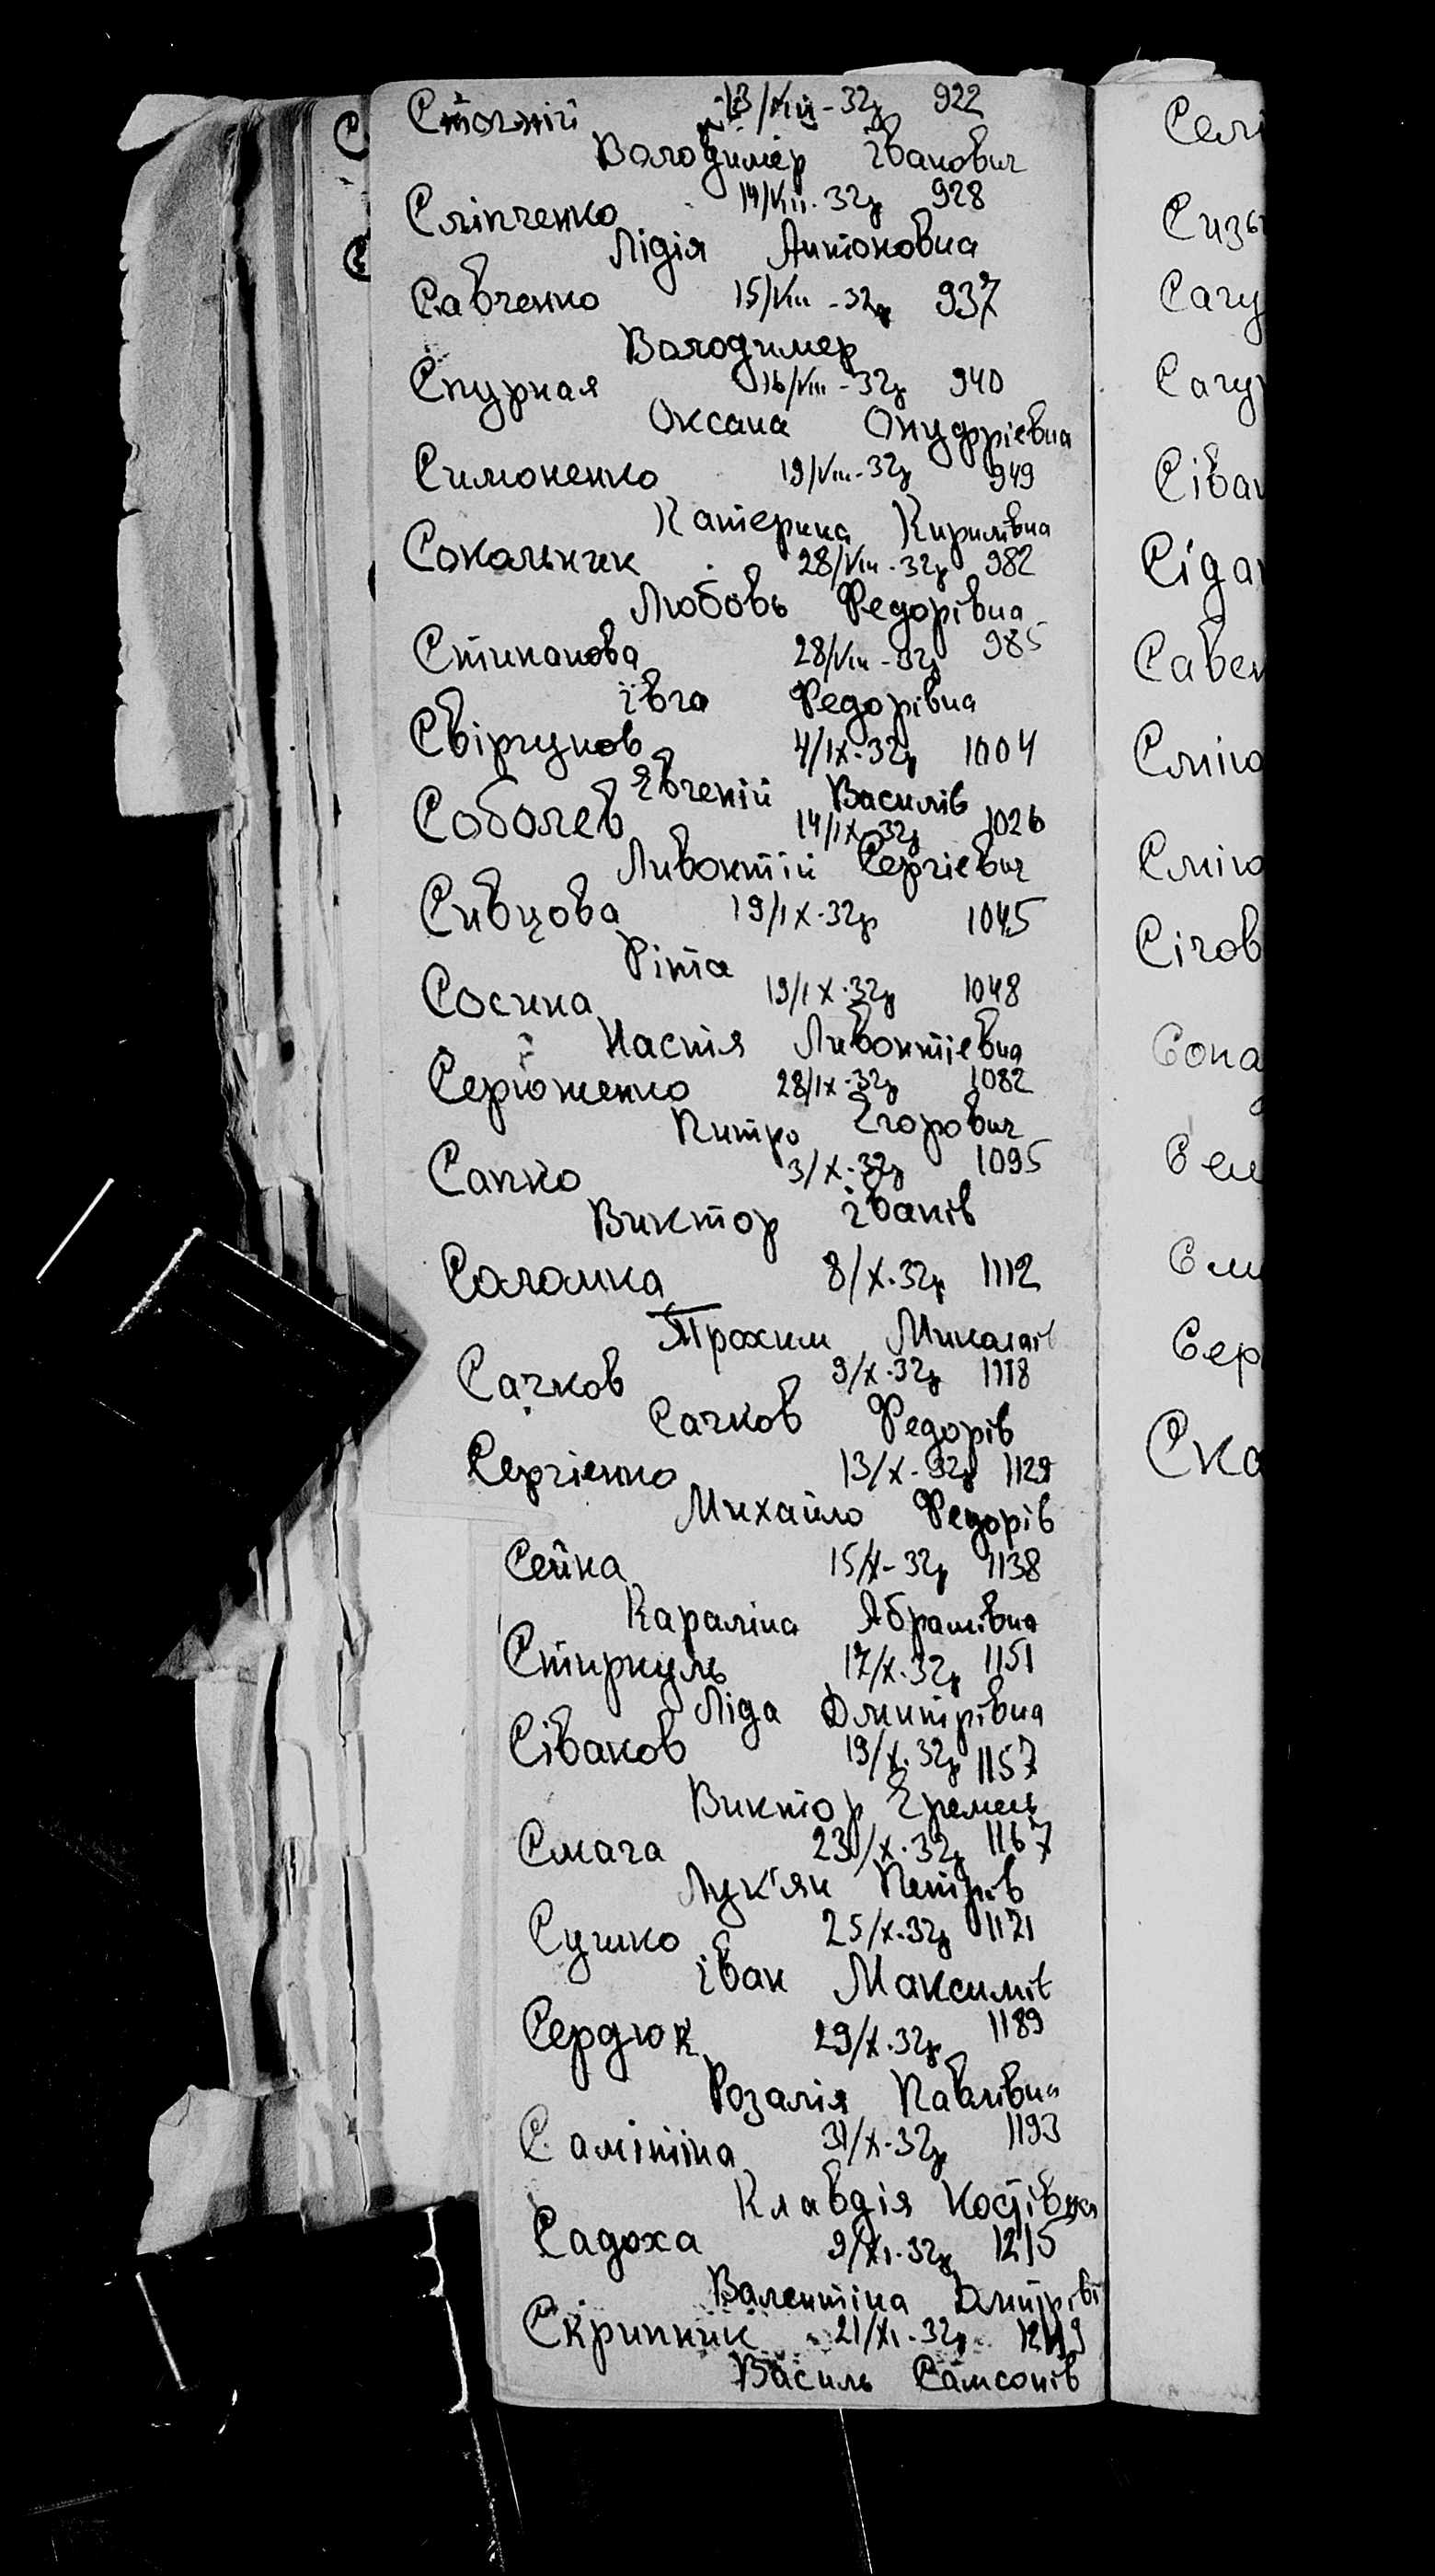 13/VIII-32р 922
Володимер Іванович
Сліпченко 14/VIII-32р 928
Лідія Антоновна
Савченко 15/VIII-32р 937
Володимер
Скурная 16/VIII-32р 940
Оксана Онуфріевна
Симоненко 19/VIII-32р 949
Катерина Кирилівна
Сокольник 28/VIII-32р 982
Любовь Федорівна
Стипанова 28/VIII-32р 985
Івга Федорівна
Свіргунов 4/IX-32р 1004
Євгеній Василів
Соболев 14/IX-32р 1026
Ливонтій Сергіевич
Сивцова 19/IX-32р 1045
Ріта
Сосина 19/IX-32р 1048
Настя Ливонтіевна
Серюженко 28/IX-32р 1082
Питро Єгорович
Сапко 3/X-32р 1095
Виктор Іванів
Соломка 8/X-32р 1112
Трохим Миколаїв
Сачков 9/X-32р 1118
Сачков Федорів
Сергіенко 13/X-32р 1129
Михайло Федорів
Сейка 15/X-32р 1138
Кароліна Абрамівна
Стиркуль 17/X-32р 1151
Ліда Дмитрівна
Сіваков 19/X-32р 1157
Виктор
Смага 23/X-32р 1167
Лук'ян Петрів
Сушко 25/X-32р 1171
Іван Максимів
Сердюк 29/X-32р 1189
Розалія Павлівна
Самітіна 31/X-32р 1193
Клавдія Костівна
Садоха 9/XI-32р 1215
Валентіна Дмитріві
Скрипник 21/XI-32р
Василь Самсонів
Селі
Сизь
Сагу
Сагу
Сіван
Сіган
Савен
Сміло
Сміло
Сігов
Сопа
Сем
Сми
Сер
Ско